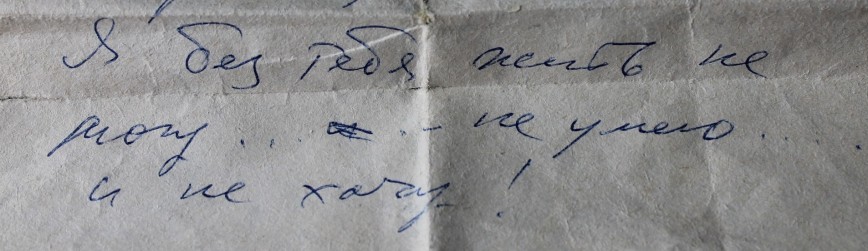 Я без тебя жить не
могу... не умею....
и не хочу!